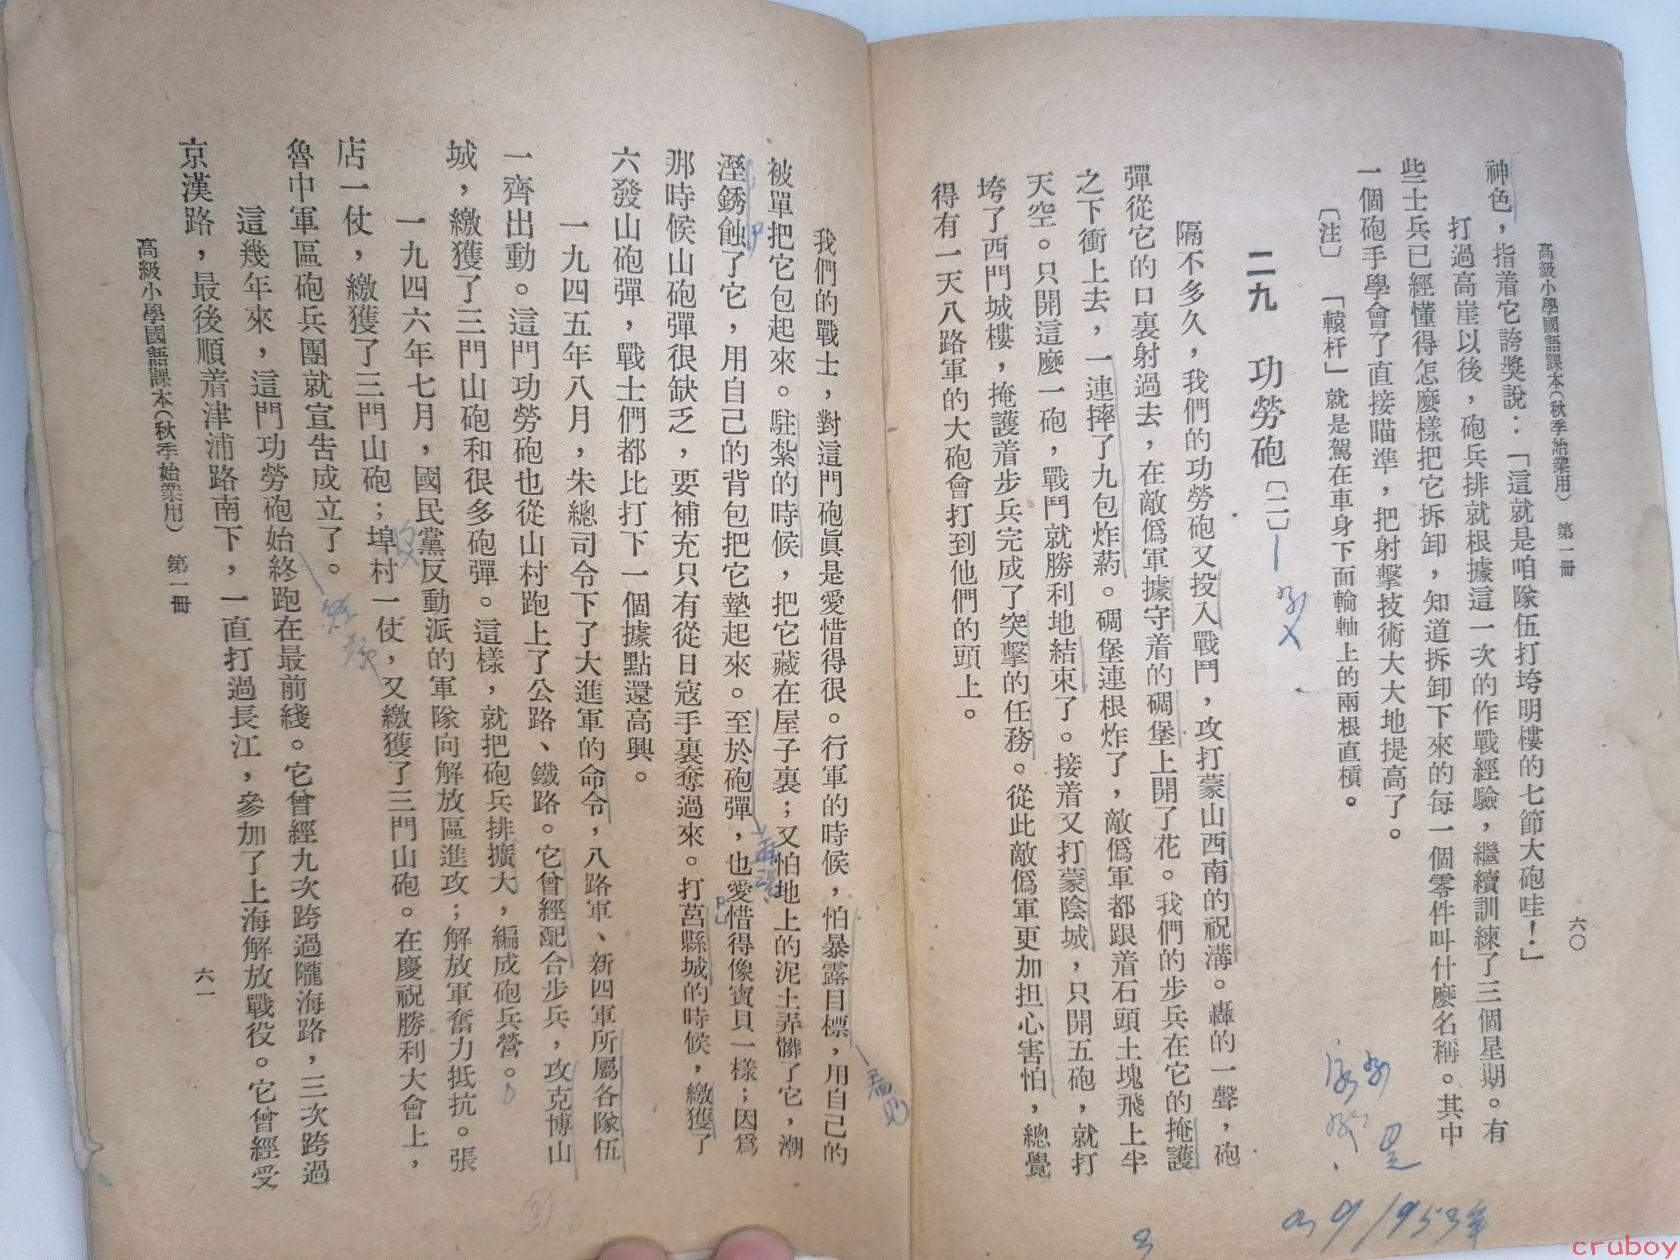 高級小學國語課本(秋季始業用) 第一冊
六〇
神色，指着它誇獎說：「這就是咱隊伍打垮明樓的七節大砲哇！」
打過高崖以後，砲兵排就根據這一次的作戰經驗，繼續訓練了三個星期。有
些士兵已經懂得怎麼樣把它拆卸，知道拆卸下來的每一個零件叫什麼名稱。其中
一個砲手學會了直接瞄準，把射擊技術大大地提高了。
〔注〕 「轅杆」就是駕在車身下面輪軸上的兩根直槓。
二九 功勞砲〔二〕
隔不多久，我們的功勞砲又投入戰鬥，攻打蒙山西南的祝溝。轟的一聲，砲
彈從它的口裏射過去，在敵僞軍據守着的碉堡上開了花。我們的步兵在它的掩護
之下衝上去，一連摔了九包炸葯。碉堡連根炸了，敵僞軍都跟着石頭土塊飛上半
天空。只開這麼一砲，戰鬥就勝利地結束了。接着又打蒙陰城，只開五砲，就打
垮了西門城樓，掩護着步兵完成了突擊的任務。從此敵僞軍更加担心害怕，總覺
得有一天八路軍的大砲會打到他們的頭上。
9/1953年
我們的戰士，對這門砲眞是愛惜得很。行軍的時候，怕暴露目標，用自己的
被單把它包起來。駐紮的時候，把它藏在屋子裏；又怕地上的泥土弄髒了它，潮
溼銹蝕了它，用自己的背包把它墊起來。至於砲彈，也愛惜得像寶貝一樣；因爲
那時候山砲彈很缺乏，要補充只有從日寇手裏奪過來。打莒縣城的時候，繳獲了
六發山砲彈，戰士們都比打下一個據點還高興。
一九四五年八月，朱總司令下了大進軍的命令，八路軍、新四軍所屬各隊伍
一齊出動。這門功勞砲也從山村跑上了公路、鐵路。它曾經配合步兵，攻克博山
城，繳獲了三門山砲和很多砲彈。這樣，就把砲兵排擴大，編成砲兵營。
一九四六年七月，國民黨反動派的軍隊向解放區進攻；解放軍奮力抵抗。張
店一仗，繳獲了三門山砲；埠村一仗，又繳獲了三門山砲。在慶祝勝利大會上，
魯中軍區砲兵團就宣告成立了。
這幾年來，這門功勞砲始終跑在最前綫。它曾經九次跨過隴海路，三次跨過
京漢路，最後順着津浦路南下，一直打過長江，參加了上海解放戰役。它曾經受
高級小學國語課本(秋季始業用) 第一冊
六一
cruboy